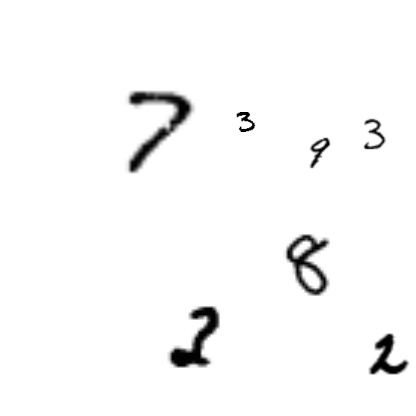 7 3 9 3
8
2 2